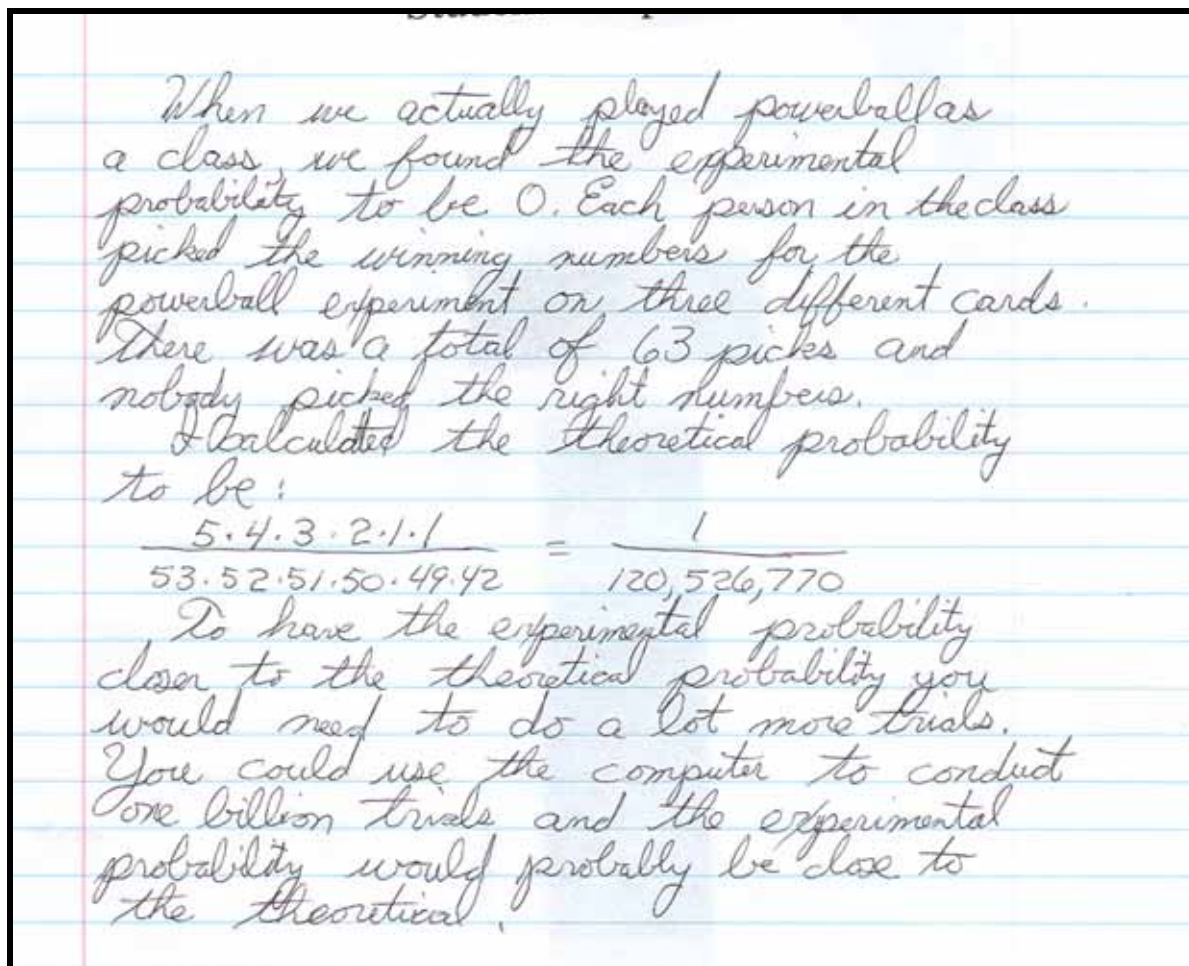 When we actually played powerball as
a class, we found the experimental
probability to be 0. Each person in the class
picked the winning numbers for the
powerball experiment on three different cards.
There was a total of 63 picks and
nobody picked the right numbers.
I calculated the theoretical probability
to be:
5·4·3·2·1·1 / 53·52·51·50·49·42 = 1 / 120,526,770
To have the experimental probability
closer to the theoretical probability you
would need to do a lot more trials.
You could use the computer to conduct
one billion trials and the experimental
probability would probably be close to
the theoretical.